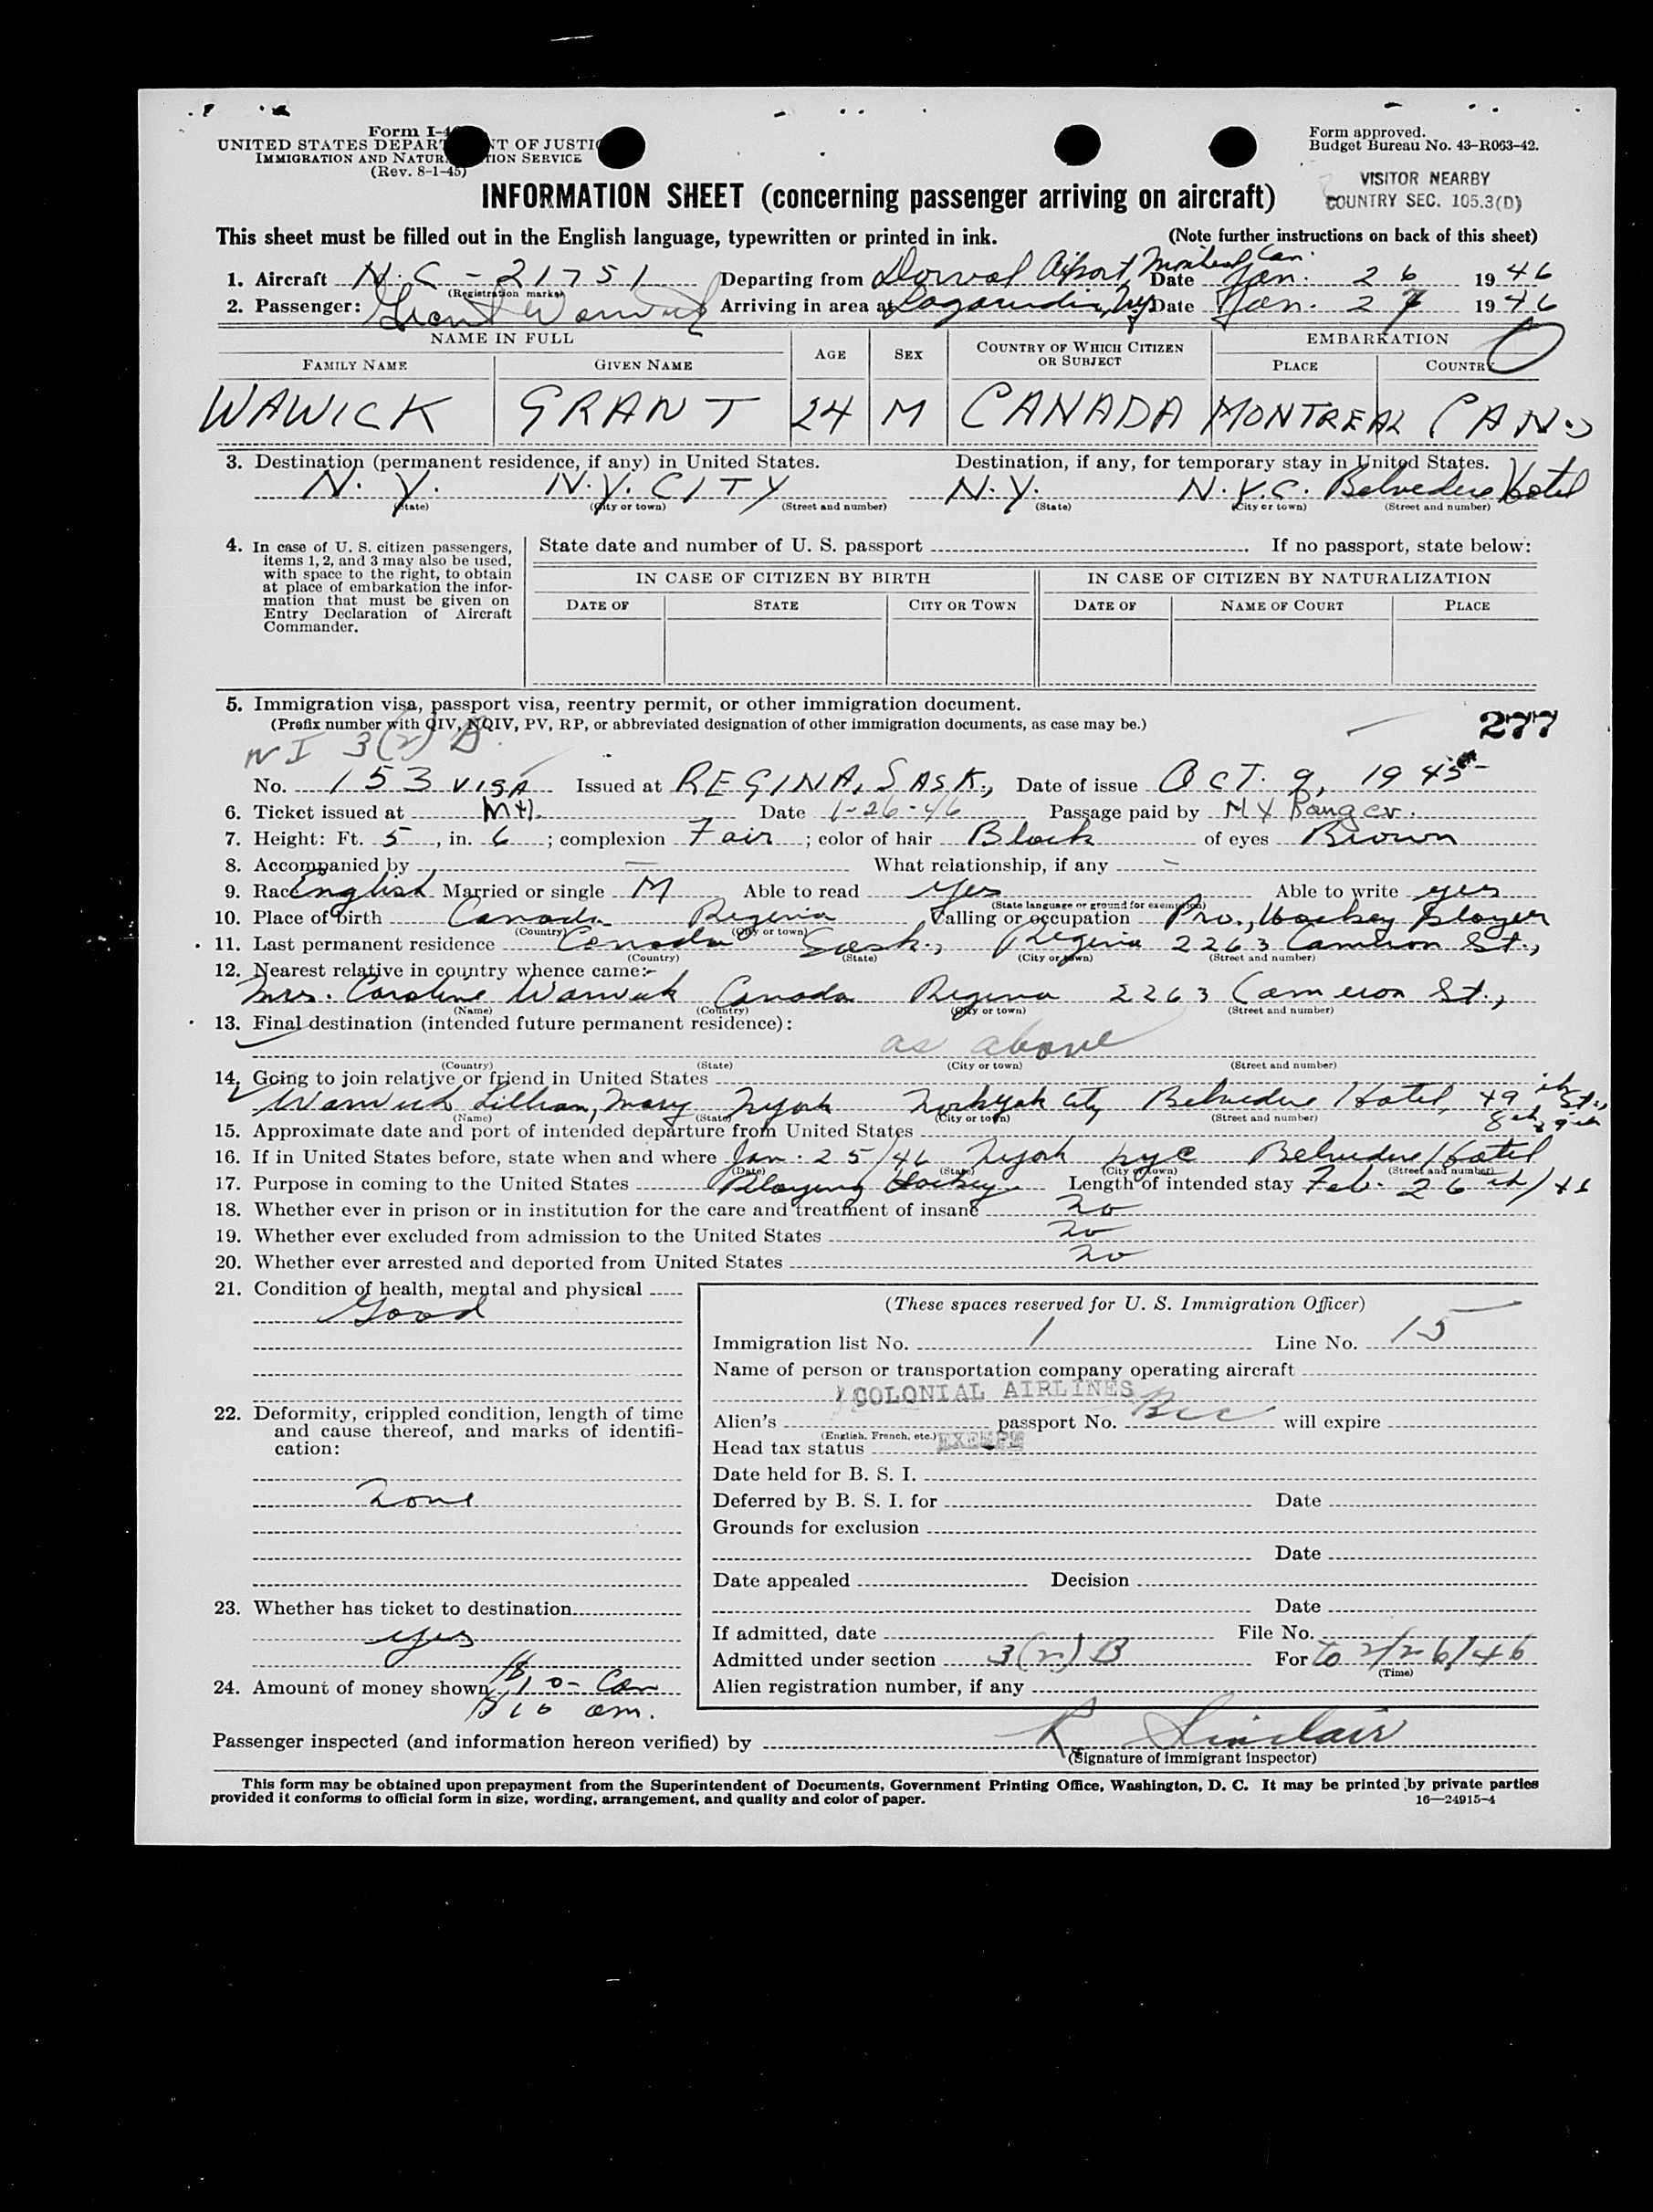 Form I-4
UNITED STATES DEPART NT OF JUSTI
IMMIGRATION AND NATUR TION SERVICE
(Rev. 8-1-45)
Form approved.
Budget Bureau No. 43-R063-42.
VISITOR NEARBY
COUNTRY SEC. 105.3(D)
INFORMATION SHEET (concerning passenger arriving on aircraft)
This sheet must be filled out in the English language, typewritten or printed in ink. (Note further instructions on back of this sheet)
1. Aircraft N.C-21751 Departing from Dorval Airport Montreal Can. Date Jan. 26 1946
(Registration marks)
2. Passenger: Grant Warwick Arriving in area at Date Jan. 27 1946
NAME IN FULL AGE SEX COUNTRY OF WHICH CITIZEN OR SUBJECT EMBARKATION
FAMILY NAME GIVEN NAME PLACE COUNTRY
WAWICK GRANT 24 M CANADA MONTREAL CAN.
3. Destination (permanent residence, if any) in United States. Destination, if any, for temporary stay in United States.
N.Y. N.Y. CITY N.Y. N.Y.C. Belvedere Hotel
(State) (City or town) (Street and number) (State) (City or town) (Street and number)
4. In case of U. S. citizen passengers, items 1, 2, and 3 may also be used, with space to the right, to obtain at place of embarkation the information that must be given on Entry Declaration of Aircraft Commander.
State date and number of U. S. passport If no passport, state below:
IN CASE OF CITIZEN BY BIRTH IN CASE OF CITIZEN BY NATURALIZATION
DATE OF STATE CITY OR TOWN DATE OF NAME OF COURT PLACE
5. Immigration visa, passport visa, reentry permit, or other immigration document.
(Prefix number with QIV, NQIV, PV, RP, or abbreviated designation of other immigration documents, as case may be.)
277
NI 3(2)B
No. 153 VISA Issued at REGINA, SASK., Date of issue OCT. 9, 1945
6. Ticket issued at Mtl. Date 1-26-46 Passage paid by NY Ranger.
7. Height: Ft. 5, in. 6; complexion Fair; color of hair Black of eyes Brown
8. Accompanied by — What relationship, if any -
9. Race English Married or single M Able to read yes Able to write yes
(State language or ground for exemption)
10. Place of birth Canada Regina Calling or occupation Pro., Hockey Player
(Country) (City or town)
11. Last permanent residence Canada Sask., Regina 2263 Cameron St.,
(Country) (State) (City or town) (Street and number)
12. Nearest relative in country whence came:-
Mrs. Caroline Warwick Canada Regina 2263 Cameron St.,
(Name) (Country) (City or town) (Street and number)
13. Final destination (intended future permanent residence):
as above
(Country) (State) (City or town) (Street and number)
14. Going to join relative or friend in United States
Warwick Lillian, Mary NYork City Belvedere Hotel, 49th St.,
(Name) (State) (City or town) (Street and number)
8th 9th
15. Approximate date and port of intended departure from United States
16. If in United States before, state when and where Jan. 25/46 NYork NYC Belvedere Hotel
(Date) (State) (City or town) (Street and number)
17. Purpose in coming to the United States Playing Hockey Length of intended stay Feb. 26th/
18. Whether ever in prison or in institution for the care and treatment of insane no
19. Whether ever excluded from admission to the United States no
20. Whether ever arrested and deported from United States no
21. Condition of health, mental and physical
Good
22. Deformity, crippled condition, length of time and cause thereof, and marks of identification:
none
23. Whether has ticket to destination
yes
24. Amount of money shown $10- Can
$10 am.
(These spaces reserved for U. S. Immigration Officer)
Immigration list No. 1 Line No. 15
Name of person or transportation company operating aircraft
COLONIAL AIRLINES
Alien's passport No. will expire
(English, French, etc.)
Head tax status EXEMPT
Date held for B. S. I.
Deferred by B. S. I. for Date
Grounds for exclusion
Date
Date appealed Decision
Date
If admitted, date File No.
Admitted under section 3(2)B For to 2/26/46
(Time)
Alien registration number, if any
Passenger inspected (and information hereon verified) by R Sinclair
(Signature of immigrant inspector)
This form may be obtained upon prepayment from the Superintendent of Documents, Government Printing Office, Washington, D. C. It may be printed by private parties
provided it conforms to official form in size, wording, arrangement, and quality and color of paper. 16—24915-4